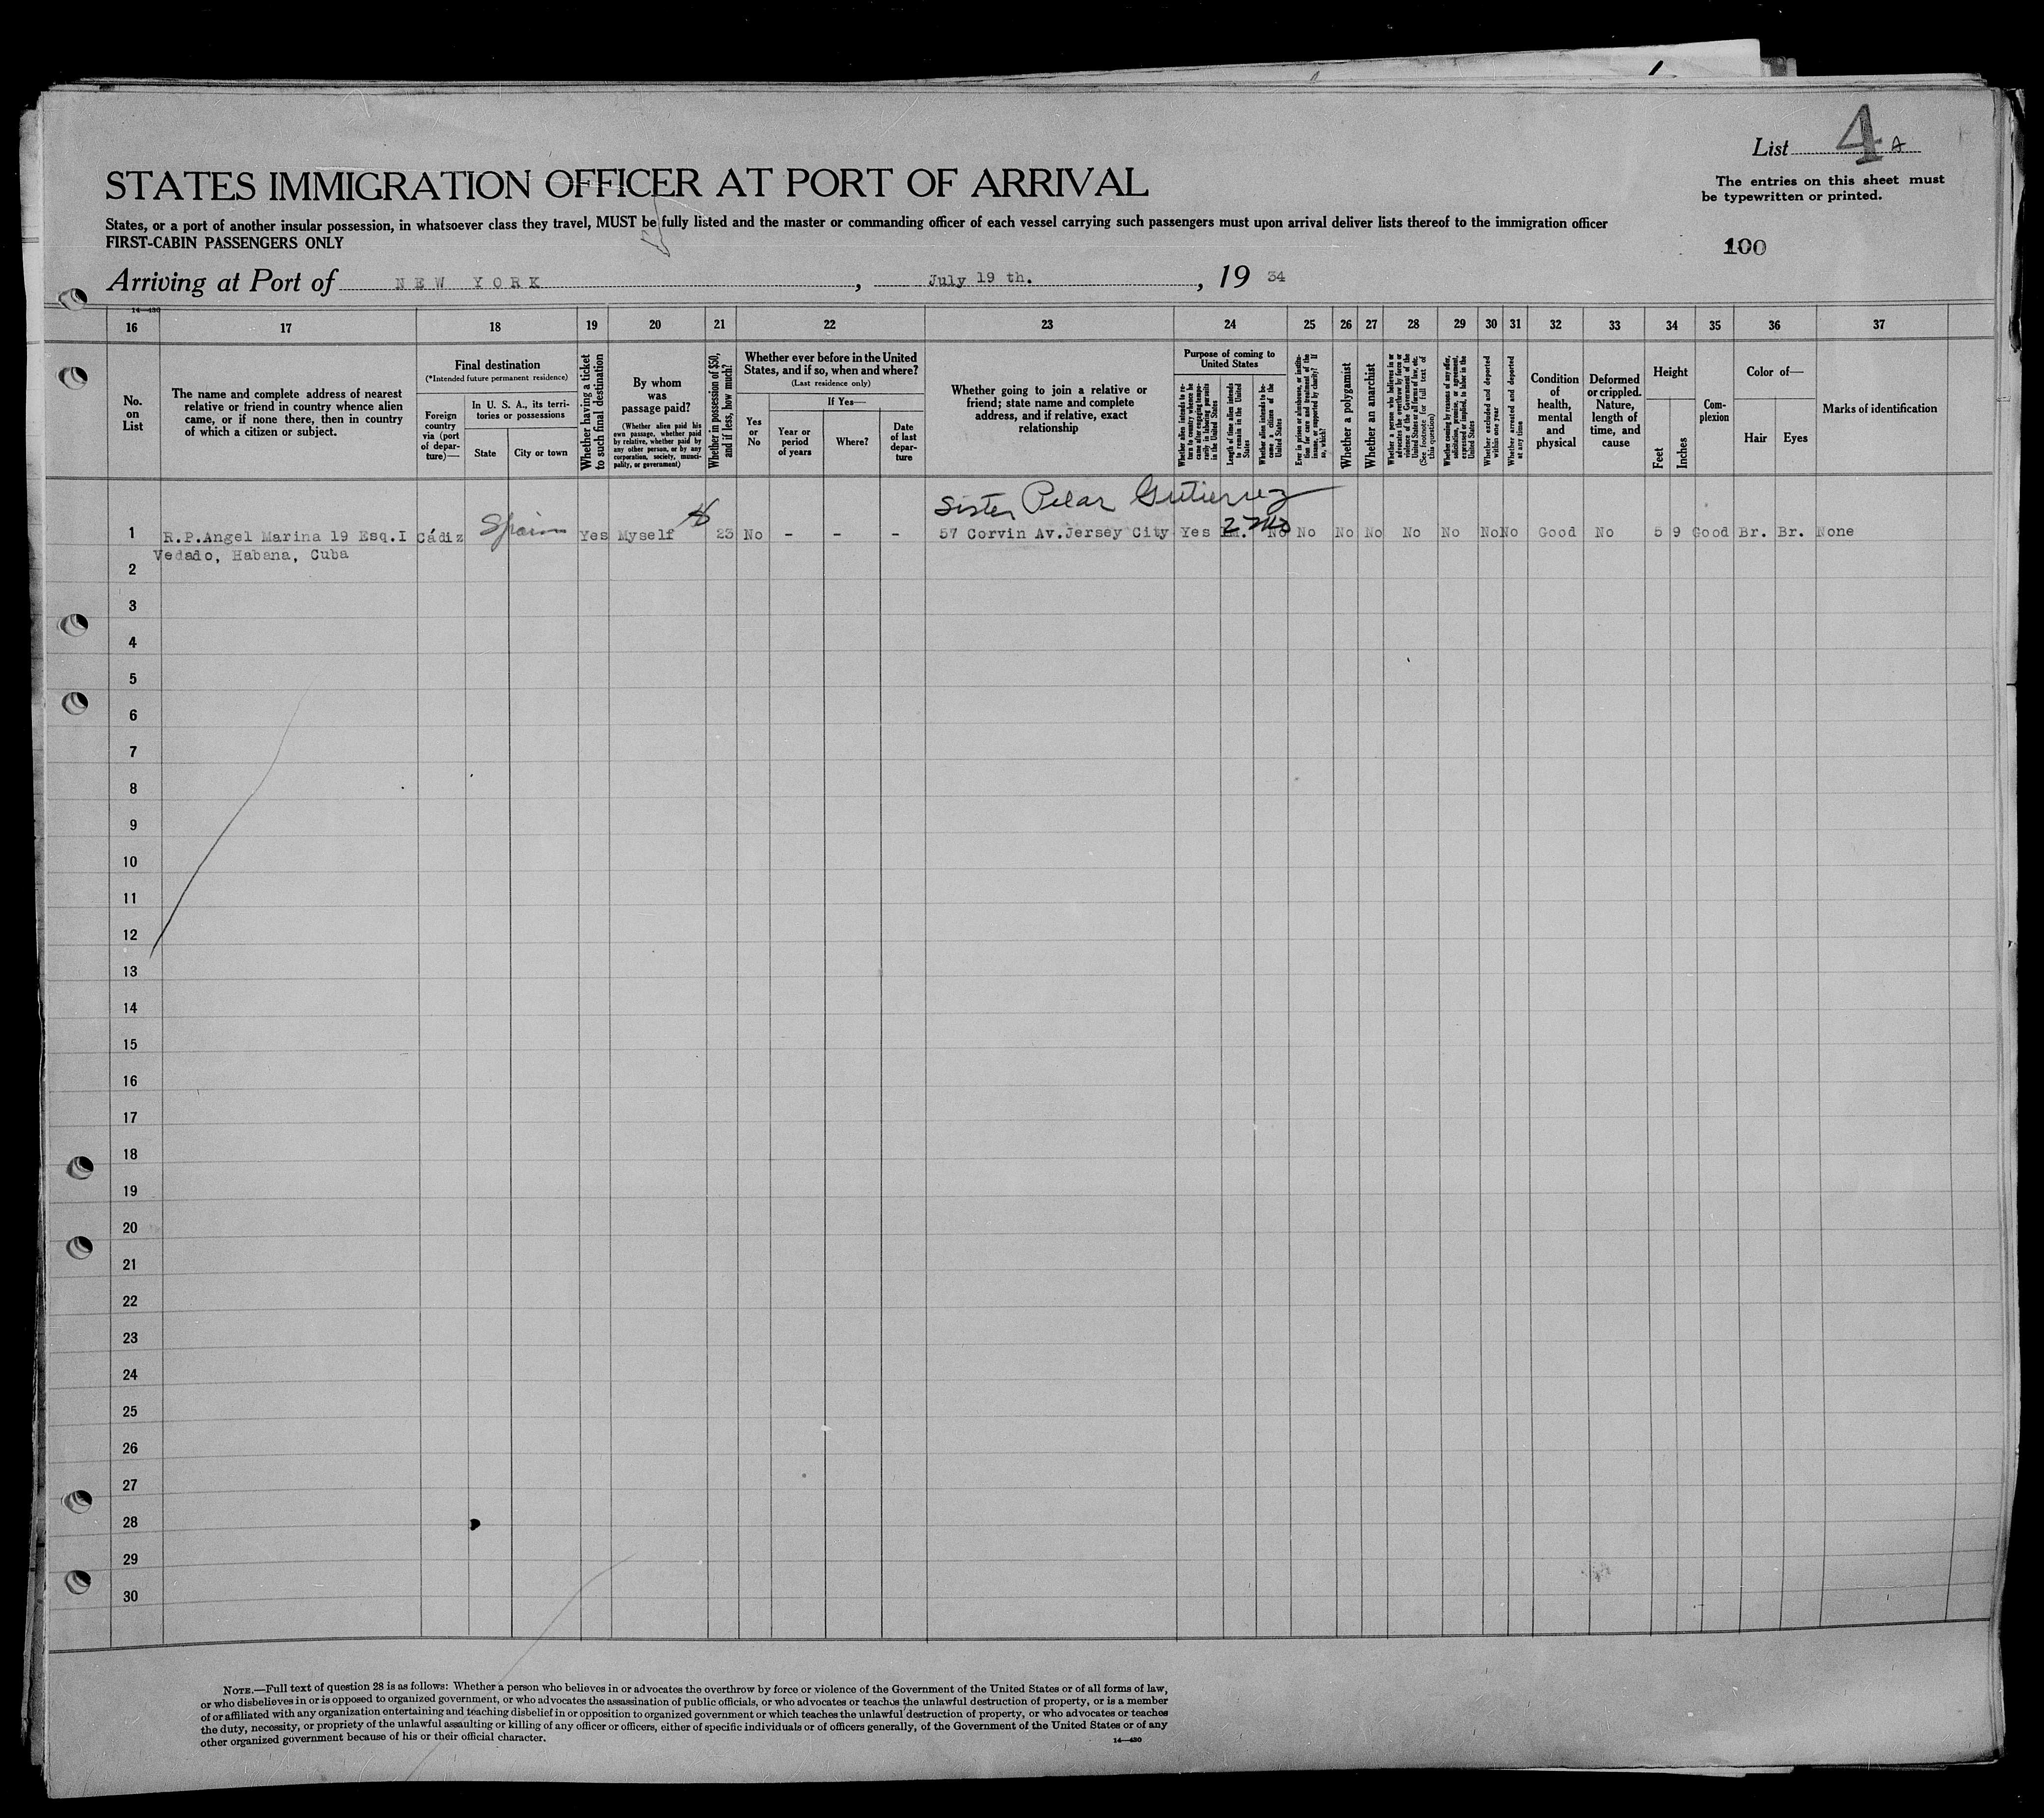 List 4 A
STATES IMMIGRATION OFFICER AT PORT OF ARRIVAL
The entries on this sheet must
be typewritten or printed.
States, or a port of another insular possession, in whatsoever class they travel, MUST be fully listed and the master or commanding officer of each vessel carrying such passengers must upon arrival deliver lists thereof to the immigration officer
FIRST-CABIN PASSENGERS ONLY
100
Arriving at Port of NEW YORK, July 19 th., 19 34
14—430
16 17 18 19 20 21 22 23 24 25 26 27 28 29 30 31 32 33 34 35 36 37
No.
on
List
The name and complete address of nearest
relative or friend in country whence alien
came, or if none there, then in country
of which a citizen or subject.
Final destination
(*Intended future permanent residence)
Foreign
country
via (port
of depar-
ture)—
In U. S. A., its terri-
tories or possessions
State
City or town
Whether having a ticket
to such final destination
By whom
was
passage paid?
(Whether alien paid his
own passage, whether paid
by relative, whether paid by
any other person, or by any
corporation, society, munici-
pality, or government)
Whether in possession of $50,
and if less, how much?
Whether ever before in the United
States, and if so, when and where?
(Last residence only)
Yes
or
No
If Yes—
Year or
period
of years
Where?
Date
of last
depar-
ture
Whether going to join a relative or
friend; state name and complete
address, and if relative, exact
relationship
Purpose of coming to
United States
Whether alien intends to re-
turn to country whence he
came after engaging tempo-
rarily in laboring pursuits
in the United States
Length of time alien intends
to remain in the United
States
Whether alien intends to be-
come a citizen of the
United States
Ever in prison or almshouse, or institu-
tion for care and treatment of the
insane, or supported by charity? If
so, which?
Whether a polygamist
Whether an anarchist
Whether a person who believes in or
advocates the overthrow by force or
violence of the Government of the
United States or all forms of law, etc.
(See footnote for full text of
this question)
Whether coming by reason of any offer,
solicitation, promise, or agreement,
expressed or implied, to labor in the
United States
Whether excluded and deported
within one year
Whether arrested and deported
at any time
Condition
of
health,
mental
and
physical
Deformed
or crippled.
Nature,
length of
time, and
cause
Height
Feet
Inches
Com-
plexion
Color of—
Hair
Eyes
Marks of identification
Sister Pilar Gutierrez
1 R.P.Angel Marina 19 Esq.I Cádiz Spain Yes Myself 23 No - - - 57 Corvin Av.Jersey City Yes 2 Mo No No No No No No No No Good No 5 9 Good Br. Br. None
Vedado, Habana, Cuba
2
3
4
5
6
7
8
9
10
11
12
13
14
15
16
17
18
19
20
21
22
23
24
25
26
27
28
29
30
NOTE.—Full text of question 28 is as follows: Whether a person who believes in or advocates the overthrow by force or violence of the Government of the United States or of all forms of law,
or who disbelieves in or is opposed to organized government, or who advocates the assassination of public officials, or who advocates or teaches the unlawful destruction of property, or is a member
of or affiliated with any organization entertaining and teaching disbelief in or opposition to organized government or which teaches the unlawful destruction of property, or who advocates or teaches
the duty, necessity, or propriety of the unlawful assaulting or killing of any officer or officers, either of specific individuals or of officers generally, of the Government of the United States or of any
other organized government because of his or their official character.
14—430